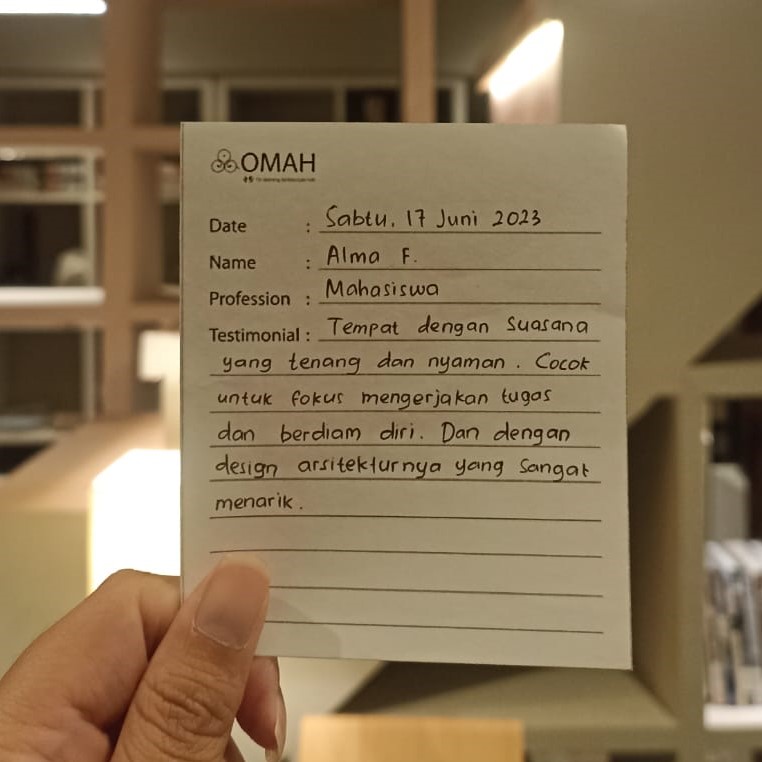 OMAH
Date : Sabtu, 17 Juni 2023
Name : Alma F.
Profession : Mahasiswa
Testimonial : Tempat dengan suasana
yang tenang dan nyaman. Cocok
untuk fokus mengerjakan tugas
dan berdiam diri. Dan dengan
design arsitekturnya yang sangat
menarik.